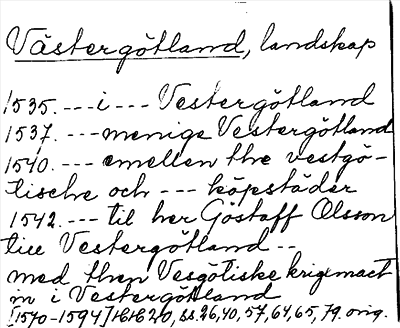 Västergötland, landskap
1535. --- i --- Vestergötland
1537. --- menige Vestergötland
1540. --- emellen the vestgö-
tische och --- köpstäder
1542. --- til her Göstaff Olsson
till Vestergötland --
med then Vesgötiske krigxmact
in i Vestergötland
[1570-1594] H6H6 2,0, ss. 26, 40, 57, 64, 65, 79. orig.